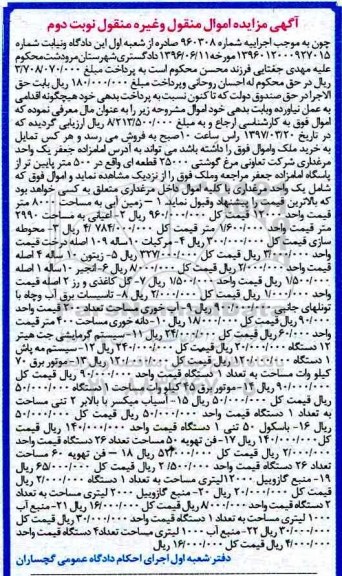 آگهی مزایده اموال منقول و غیره منقول نوبت دوم
چون به موجب اجراییه شماره ۹۶۰۳۰۸ صادره از شعبه اول این دادگاه ونیابت شماره
۱۳۹۶۰۱۲۰۰۰۹۲۷۰۱۵ مورخه ۱۳۹۶/۰۶/۱۱ دادگستری شهرستان مرودشت محکوم
علیه مهدی جغتایی فرزند محسن محکوم است به پرداخت مبلغ ۳/۷۰۸/۰۷۰/۰۰۰
ریال در حق محکوم له احسان روحانی وپرداخت مبلغ ۱۸۰/۰۰۰/۰۰۰ ریال بابت حق
الاجرا در حق صندوق دولت که تا کنون نسبت به پرداخت بدهی خود هیچگونه اقدامی
به عمل نیاورده وبابت بدهی خود اموال مشروحه زیر را به عنوان مال معرفی نموده که
اموال فوق به کارشناسی ارجاع و به مبلغ ۸/۲۱۳/۵۰۰/۰۰۰ ریال ارزیابی گردیده که
در تاریخ ۱۳۹۷/۰۳/۲۰ راس ساعت ۱۰صبح به فروش می رسد و هر کس تمایل
به خرید ملک واموال فوق را داشته باشد می تواند به آدرس امامزاده جعفر یک واحد
مرغداری شرکت تعاونی مرغ گوشتی ۲۵۰۰۰ قطعه ای واقع در ۵۰۰ متر پایین تر از
پاسگاه امامزاده جعفر مراجعه وملک فوق را از نزدیک مشاهده نمایند و اموال فوق که
شامل یک واحد مرغداری با کلیه اموال داخل مرغداری متعلق به کسی خواهد بود
که بالاترین قیمت را پیشنهاد وقبول نماید ۱ – زمین آبی به مساحت ۸۰۰۰ متر
قیمت واحد ۱۲۰/۰۰۰ قیمت کل ۹۶۰/۰۰۰/۰۰۰ ریال ۲- اعیانی به مساحت ۲۹۹۰
متر قیمت واحد ۱/۶۰۰/۰۰۰ متر قیمت کل ۴/۷۸۴/۰۰۰/۰۰۰ ریال ۳- محوطه
سازی قیمت کل ۳۰/۰۰۰/۰۰۰ ریال ۴- مرکبات ۱۰ساله ۱۰۹ اصله درخت قیمت
واحد ۳/۰۰۰/۰۰۰ ریال قیمت کل ۳۲۷/۰۰۰/۰۰۰ ریال ۵- زیتون ۱۰ ساله ۴ اصله
قیمت واحد ۲/۰۰۰/۰۰۰ ریال قیمت کل ۸/۰۰۰/۰۰۰ ریال ۶- انجیر ۱۰ساله ۱ اصله
۱/۵۰۰/۰۰۰ ریال قیمت واحد ۱/۵۰۰/۰۰۰ ریال ۷- گل کاغذی و رز ۲ اصله قیمت
واحد ۱/۰۰۰/۰۰۰ ریال قیمت کل ۲/۰۰۰/۰۰۰ ریال ۸- تاسیسات برق آب وچاه با
تونلهای جانبی
قیمت واحد ۶۰/۰۰۰ ریال قیمت کل ۲۴/۰۰۰/۰۰۰ ریال ۱۱- سیستم گرمایشی جت هیتر
کیلو وات مساحت به تعداد ۱ دستگاه قیمت واحد ۹۰/۰۰۰/۰۰۰ ریال قیمت کل
۹۰/۰۰۰/۰۰۰ ریال ۱۴- موتور برق ۴۵ کیلو وات مساحت ۱ دستگاه ۵۰/۰۰۰/۰۰۰
ریال قیمت کل ۵۰/۰۰۰/۰۰۰ ریال ۱۵- آسیاب میکسر با بالابر ۲ تنی مساحت
به تعداد ۱ دستگاه قیمت واحد ۵۰/۰۰۰/۰۰۰ ریال قیمت کل ۵۰/۰۰۰/۰۰۰
ریال ۱۶- باسکول ۵۰ تنی ۱ دستگاه قیمت واحد ۱۴۰/۰۰۰/۰۰۰ ریال قیمت
کل ۱۴۰/۰۰۰/۰۰۰ ریال ۱۷- فن تهویه ۵۰ مساحت تعداد ۲۶ دستگاه قیمت واحد
۲/۰۰۰/۰۰۰ ریال قیمت کل ۵۲/۰۰۰/۰۰۰ ریال ۱۸ – فن تهویه ۶۰ مساحت
تعداد ۲۶ دستگاه قیمت واحد ۲/۵۰۰/۰۰۰ ریال قیمت کل ۶۵/۰۰۰/۰۰۰ ریال
۱۹- منبع گازوییل ۱۲۰۰۰ لیتری مساحت به تعداد ۱ دستگاه ۲۰/۰۰۰/۰۰۰ ریال
قیمت کل ۲۰/۰۰۰/۰۰۰ ریال ۲۰- منبع گازوییل ۲۰۰۰ لیتری مساحت به تعداد
۲ دستگاه قیمت واحد ۸/۰۰۰/۰۰۰ ریال قیمت کل ۱۶/۰۰۰/۰۰۰ ریال ۲۱- منبع آب
۱۰۰۰۰ لیتری مساحت به تعداد ۱ دستگاه قیمت واحد ۳۰/۰۰۰/۰۰۰ ریال قیمت کل
۳۰/۰۰۰/۰۰۰ ریال ۲۲- منبع آب ۱۰۰۰ لیتری مساحت تعداد۴ دستگاه قیمت واحد
۴/۰۰۰/۰۰۰ ریال قیمت کل ۱۶/۰۰۰/۰۰۰ ریال
دفتر شعبه اول اجرای احکام دادگاه عمومی گچساران